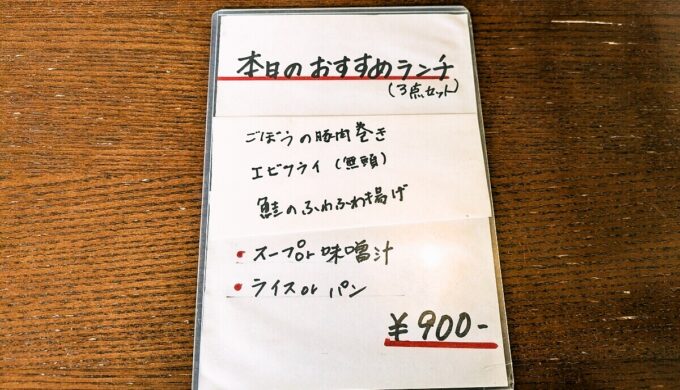 本日のおすすめランチ
(3点セット)
ごぼうの豚肉巻き
エビフライ(無頭)
鮭のふわふわ揚げ
・スープor味噌汁
・ライスor パン
¥900-